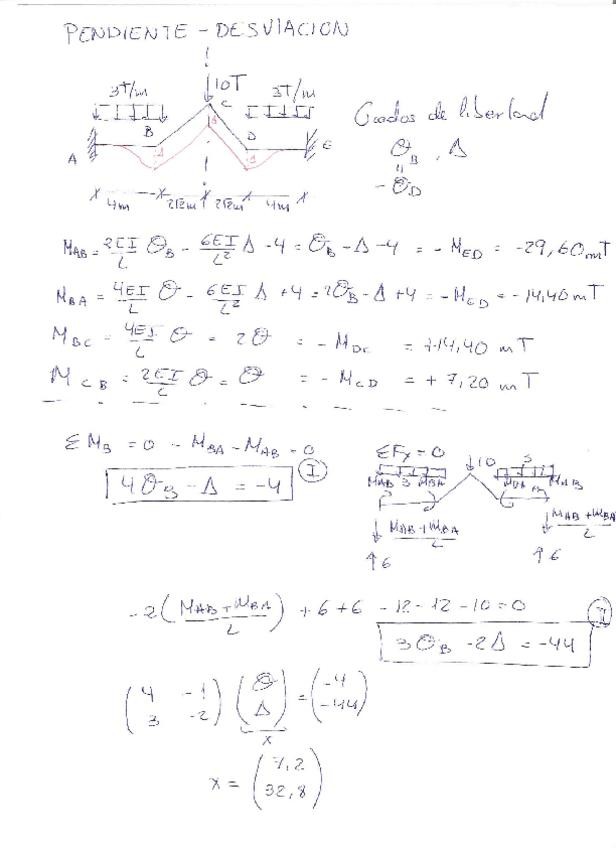 PENDIENTE - DESVIACION
10T
3T/m C 3T/m
B D
A E
Grados de libertad
θB , Δ
"
-θD
x 4m x 2√2m x 2√2m x 4m x
MAB = 2EI/L θB - 6EI/L² Δ - 4 = θB - Δ - 4 = - MED = -29,60 mT
MBA = 4EI/L θ - 6EI/L² Δ + 4 = 2θB - Δ + 4 = - MCD = -14,40 mT
MBC = 4EI/L θ = 2θ = - MDC = +14,40 mT
MCB = 2EI/L θ = θ = - MCD = + 7,20 mT
ΣMB = 0 - MBA - MAB = 0
I
4θB - Δ = -4
ΣFy = 0
10
MAB 3 MBA MBA MAB
MAB + MBA/L MAB + MBA/L
↑6 ↑6
-2 (MAB + MBA/L) + 6 + 6 - 12 - 12 - 10 = 0
II
3θB - 2Δ = -44
(4 -1) (θ) = (-4)
(3 -2) (Δ) (-44)
x
x = (7,2)
(32,8)